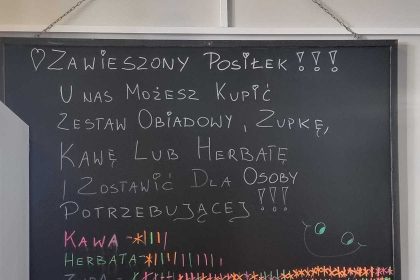 ♡ Zawieszony Posiłek !!!
U nas Możesz Kupić
Zestaw Obiadowy, Zupkę,
Kawę Lub Herbatę
I Zostawić Dla Osoby
Potrzebującej !!!
Kawa -
Herbata -